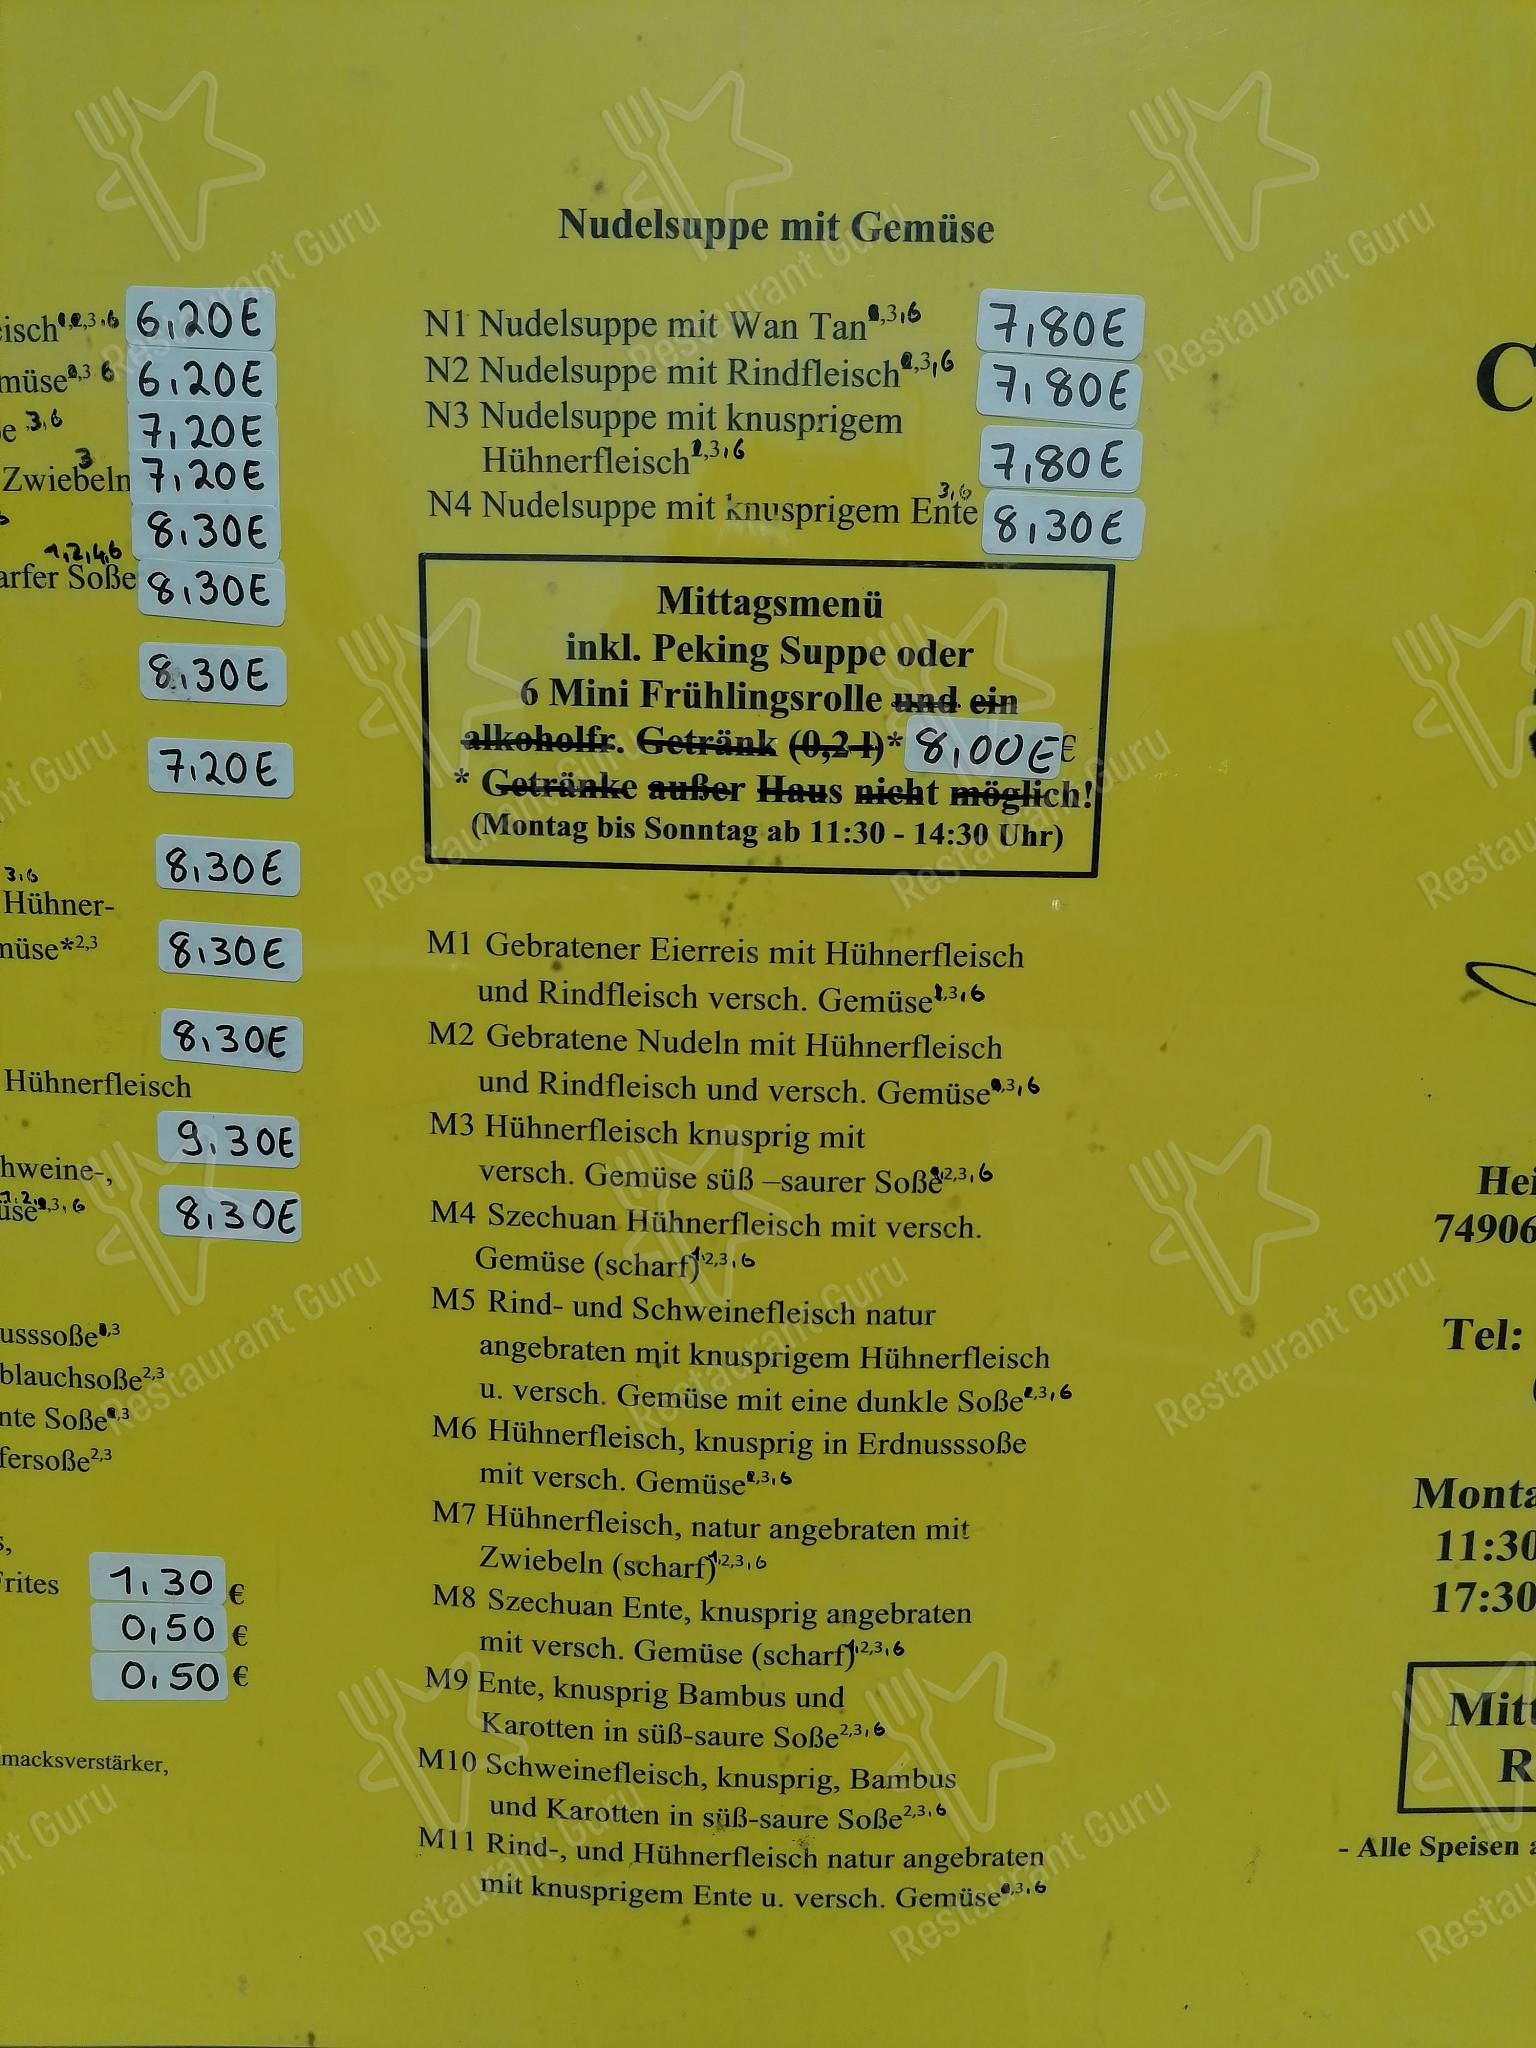 Nudelsuppe mit Gemüse
eisch 2,3,6 6,20€
müse 2,3 6 6,20€
e 3,6 7,20€
Zwiebeln 3 7,20€
8,30€
arfer Soße 1,2,4,6 8,30€
8,30€
7,20€
8,30€
3,6
Hühner-
müse*2,3 8,30€
8,30€
Hühnerfleisch
9,30€
hweine-,
üse 1,2,3,6 8,30€
usssoße ,3
blauchsoße2,3
nte Soße ,3
fersoße2,3
s,
rites 1,30 €
0,50 €
0,50 €
macksverstärker,
N1 Nudelsuppe mit Wan Tan ,3,6 7,80€
N2 Nudelsuppe mit Rindfleisch2,3,6 7,80€
N3 Nudelsuppe mit knusprigem
Hühnerfleisch2,3,6 7,80€
N4 Nudelsuppe mit knusprigem Ente 3,6 8,30€
Mittagsmenü
inkl. Peking Suppe oder
6 Mini Frühlingsrolle und ein
alkoholfr. Getränk (0,2 l)* 8,00€ €
* Getränke außer Haus nicht möglich!
(Montag bis Sonntag ab 11:30 - 14:30 Uhr)
M1 Gebratener Eierreis mit Hühnerfleisch
und Rindfleisch versch. Gemüse ,3,6
M2 Gebratene Nudeln mit Hühnerfleisch
und Rindfleisch und versch. Gemüse ,3,6
M3 Hühnerfleisch knusprig mit
versch. Gemüse süß –saurer Soße ,2,3,6
M4 Szechuan Hühnerfleisch mit versch.
Gemüse (scharf)1,2,3,6
M5 Rind- und Schweinefleisch natur
angebraten mit knusprigem Hühnerfleisch
u. versch. Gemüse mit eine dunkle Soße2,3,6
M6 Hühnerfleisch, knusprig in Erdnusssoße
mit versch. Gemüse ,3,6
M7 Hühnerfleisch, natur angebraten mit
Zwiebeln (scharf)1,2,3,6
M8 Szechuan Ente, knusprig angebraten
mit versch. Gemüse (scharf)1,2,3,6
M9 Ente, knusprig Bambus und
Karotten in süß-saure Soße2,3,6
M10 Schweinefleisch, knusprig, Bambus
und Karotten in süß-saure Soße2,3,6
M11 Rind-, und Hühnerfleisch natur angebraten
mit knusprigem Ente u. versch. Gemüse ,3,6
C
Hei
74906
Tel:
Monta
11:30
17:30
Mitt
R
- Alle Speisen a
Restaurant Guru